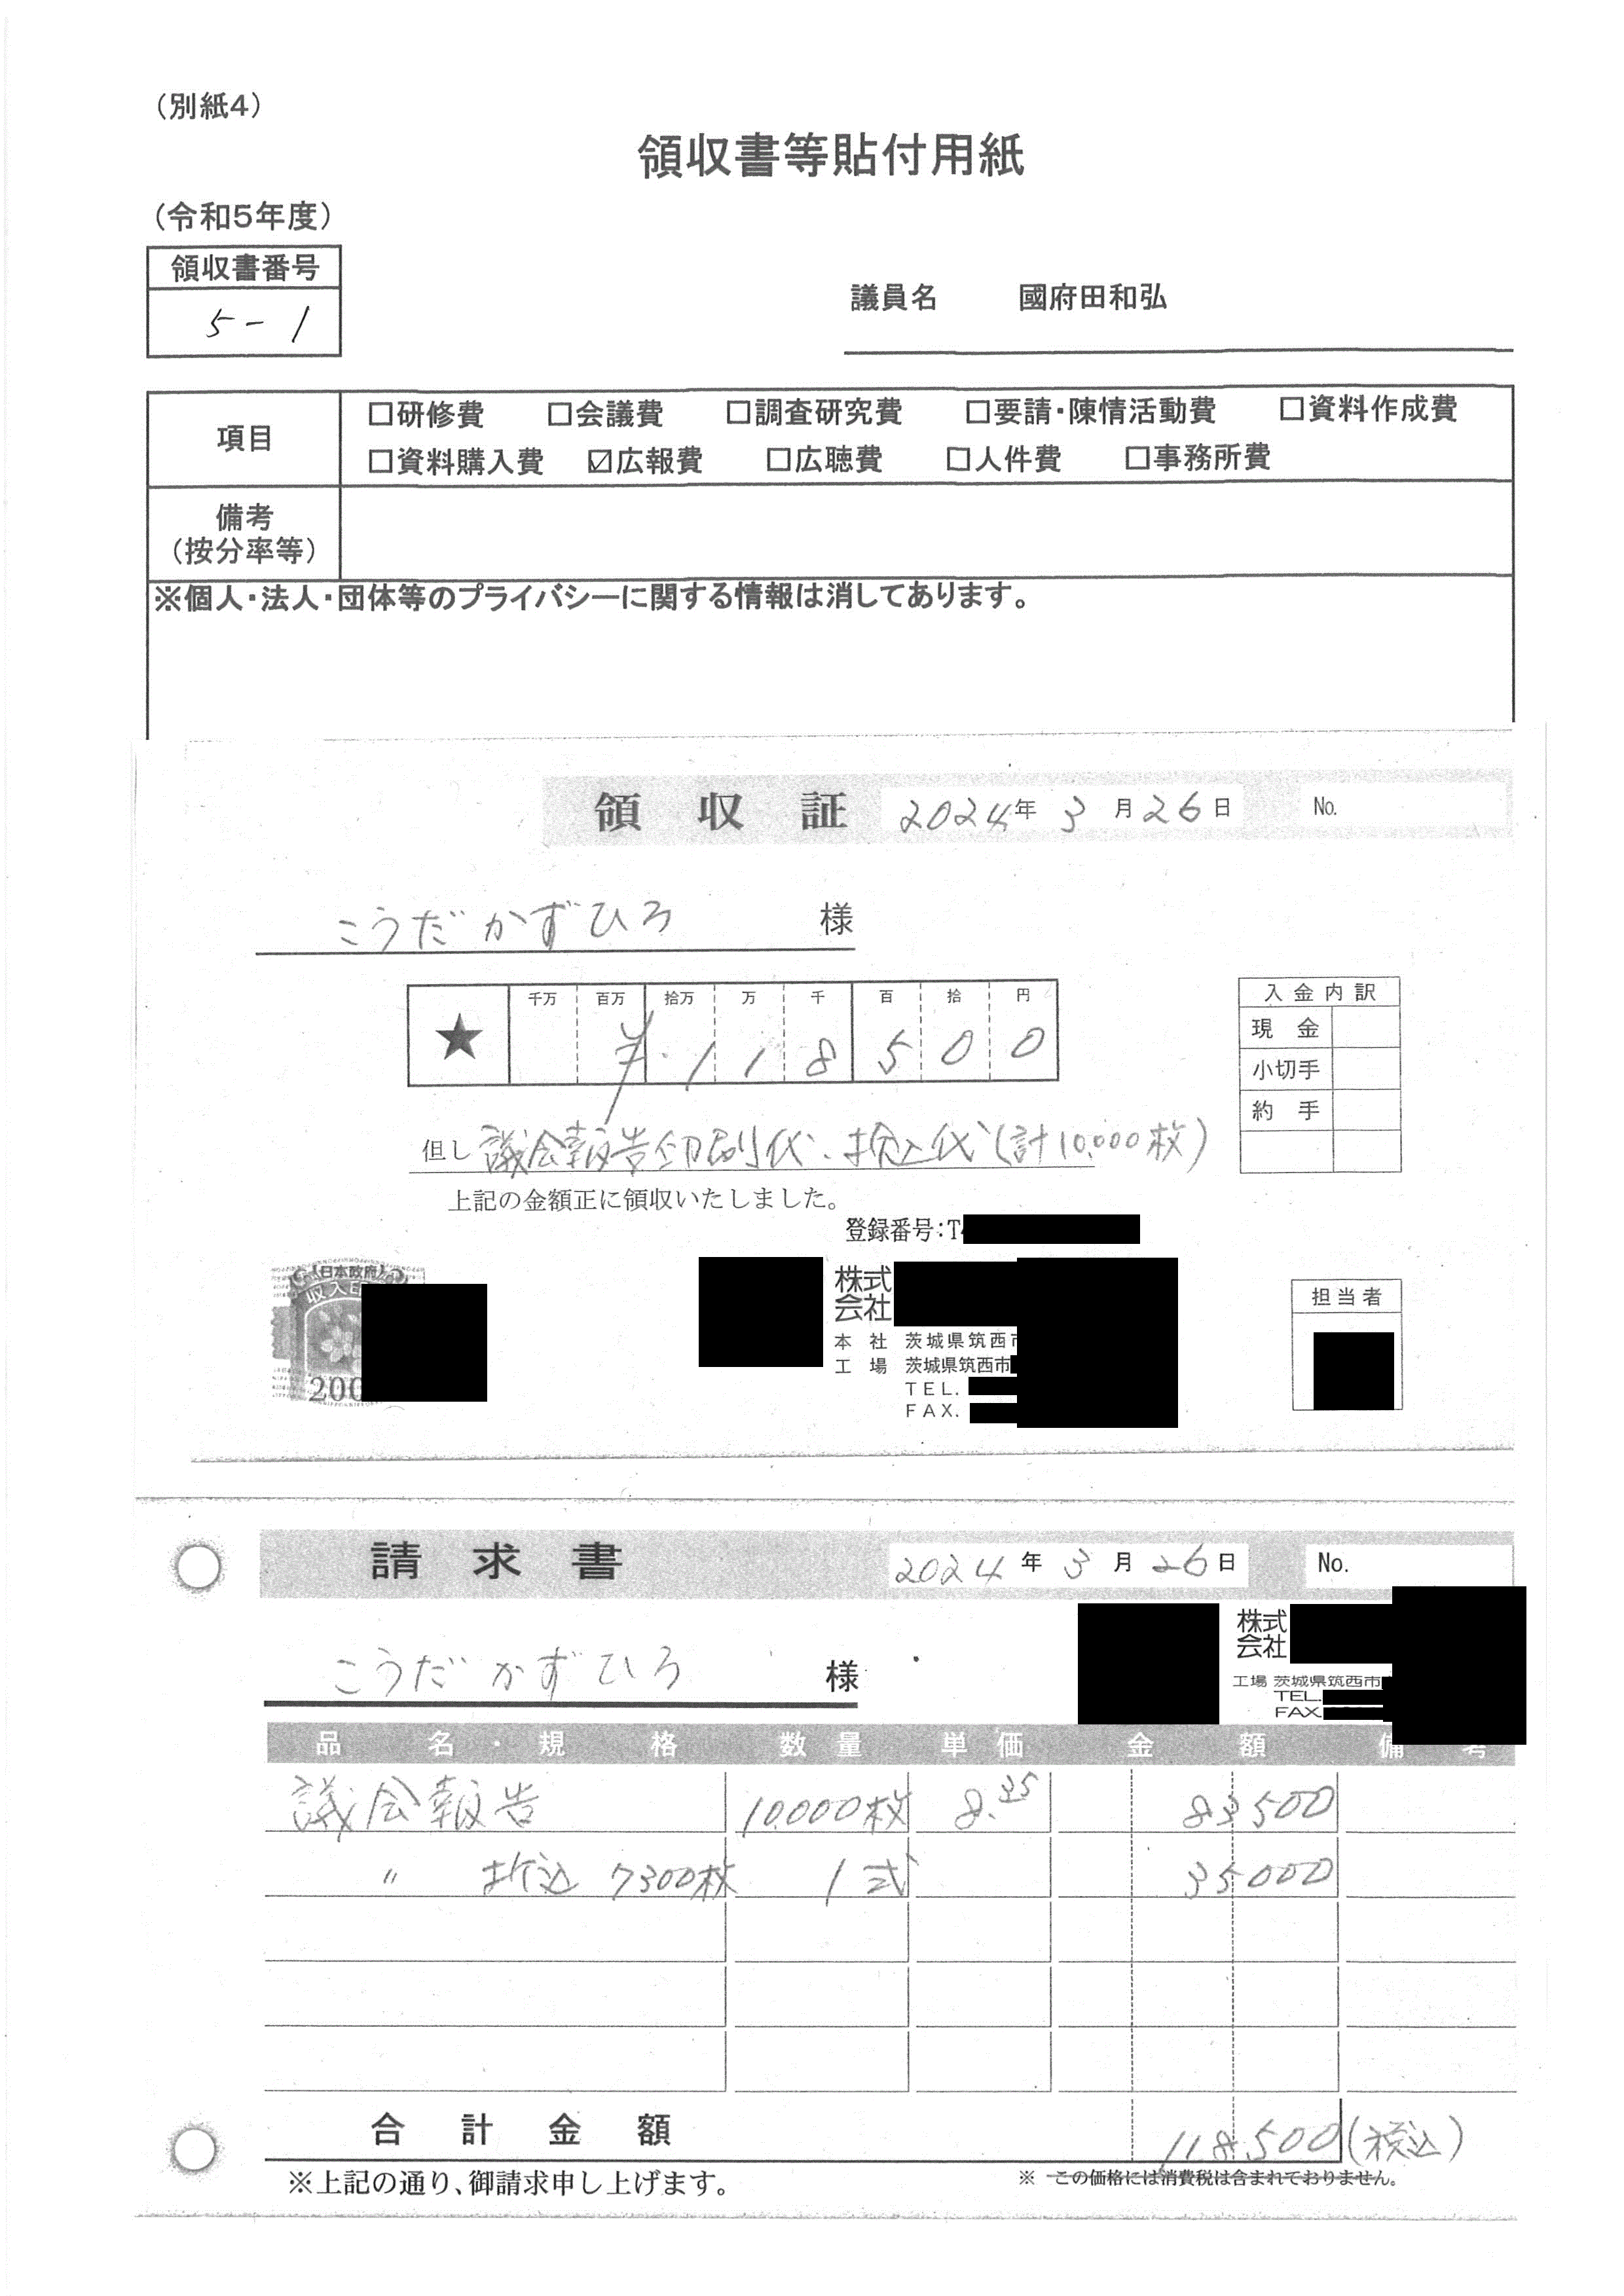 （別紙４）
領収書等貼付用紙
（令和５年度）
領収書番号
5-1
議員名 國府田和弘
項目
□研修費 □会議費 □調査研究費 □要請・陳情活動費 □資料作成費
□資料購入費 ☑広報費 □広聴費 □人件費 □事務所費
備考
（按分率等）
※個人・法人・団体等のプライバシーに関する情報は消してあります。
領収証 2024年 3月 26日 No.
こうだ かずひろ 様
★ 千万 百万 拾万 万 千 百 拾 円
￥118500
入金内訳
現金
小切手
約手
但し 議会報告印刷代、折込代(計10,000枚)
上記の金額正に領収いたしました。
登録番号:T
日本政府
収入印
200
株式
会社
本社 茨城県筑西市
工場 茨城県筑西市
TEL.
FAX.
担当者
請求書 2024年 3月 26日 No.
こうだ かずひろ 様
株式
会社
工場 茨城県筑西市
TEL.
FAX.
品名・規格 数量 単価 金額 備考
議会報告 10.000枚 8.35 83500
〃 折込 7300枚 1式 35000
合計金額 118,500(税込)
※上記の通り、御請求申し上げます。
※ この価格には消費税は含まれておりません。